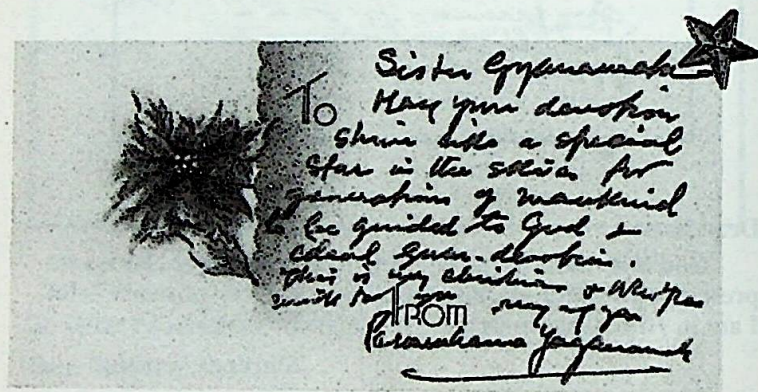 To Sister Gyanamata
May your devotion
shine like a special
star in the skies for
generations of mankind
to be guided to God &
ideal guru-devotion.
This is my Christmas & New Year
wish to you
From
Paramahansa Yogananda